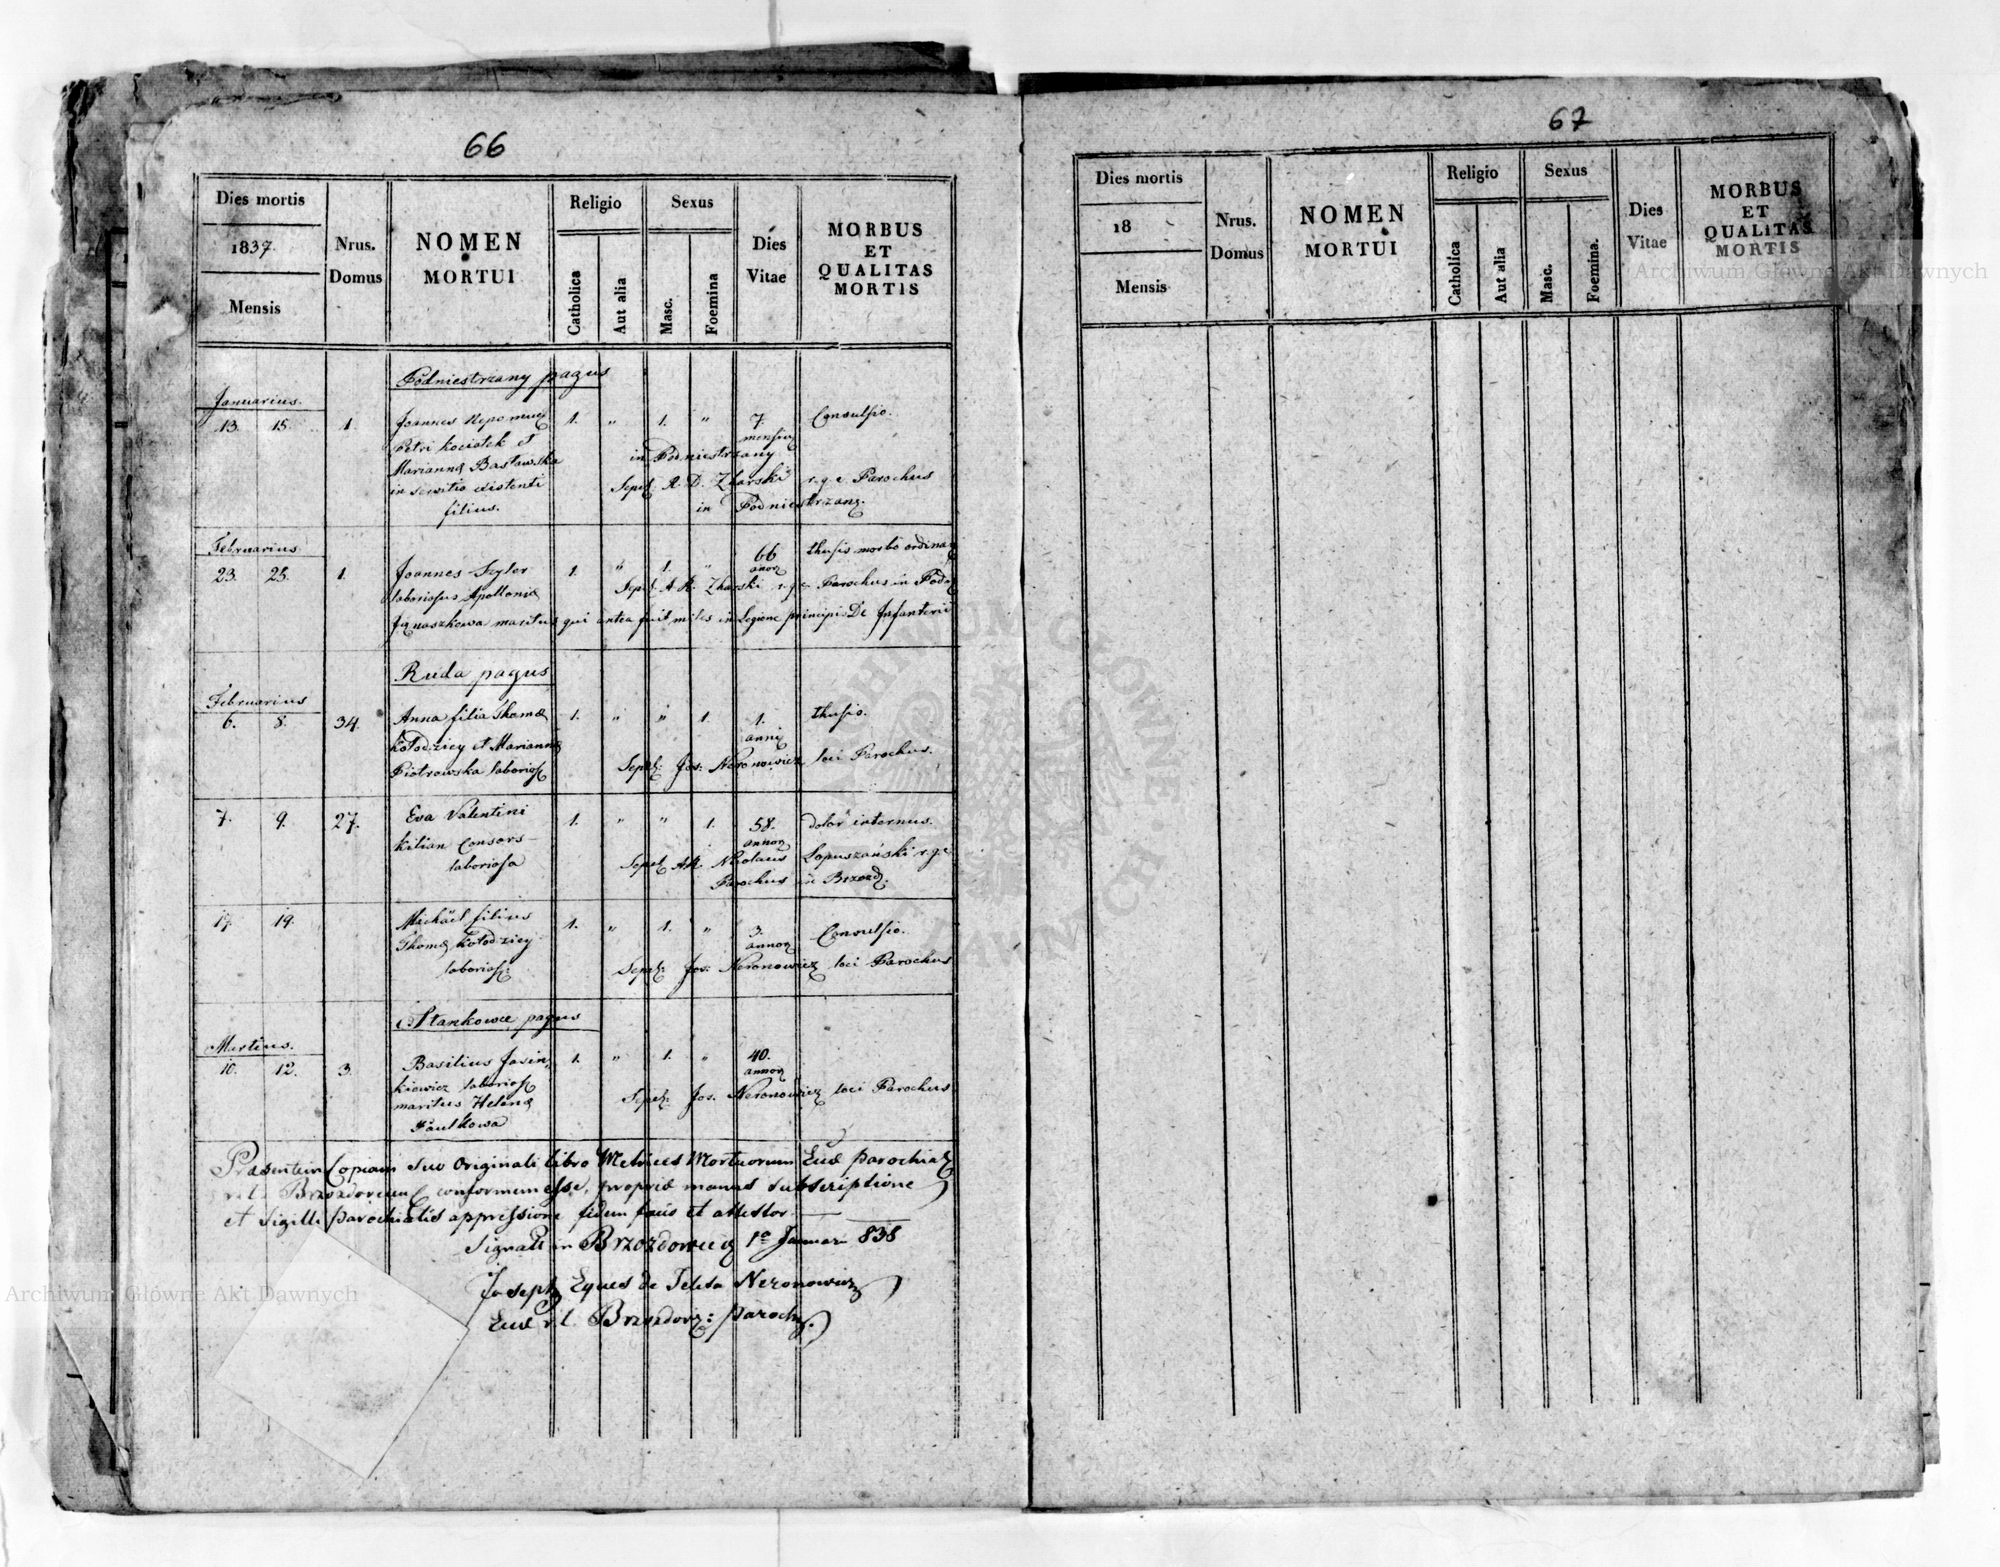 66
Dies mortis
1837.
Mensis
Nrus.
Domus
NOMEN
MORTUI
Religio
Catholica
Aut alia
Sexus
Masc.
Foemina
Dies
Vitae
MORBUS
ET
QUALITAS
MORTIS
Podniestrzany pagus
Januarius.
13. 15. 1. Joannes Nepomuc 1. " 1. " 7. Convulsio.
Petri Kociołek et mensium
Marianna Basławska in Podniestrzany
in servitio existenti Sepel. R. D. Zharski r. g. c. Parochus
filius. in Podniestrzany.
Februarius
23. 25. 1. Joannes Szyler 1. " 1. " 66 thusis morbo ordinar
laboriosus Apollonia annor Sepel. A. R. Zharski r. g. c. Parochus in Podn
Ignaszkowa maritus qui antea fuit miles in Legione principis De Infanterie
Ruda pagus
Februarius
6. 8. 34. Anna filia Thomæ 1. " " 1. 1. thusio.
Kołodziey et Marianna anni
Piotrowska laborios Sepel: Jos: Neronowicz loci Parochus.
7. 9. 27. Eva Valentini 1. " " 1. 58. dolor internus.
Kilian Consors annor
laboriosa Sepel AR. Nicolaus Łopuszański r. g. c
Parochus in Brzozd.
17. 19. Michäel filius 1. " 1. " 3. Convulsio.
Thomæ Kołodziey annor
laborios: Sepel: Jos: Neronowicz loci Parochus
Stankowce pagus
Martius.
10. 12. 3. Basilius Jasin 1. " 1. " 40.
kiewicz laborios annor
maritus Helenæ Sepel: Jos. Neronowicz loci Parochus
Pawlkowa
Præsentem Copiam suo Originali libro Metrices Mortuorum Eccl Parochial
r. l. Brzozdovecum conformem esse, propriæ manus subscriptione
et Sigilli Parochialis appressione fidem facio et attestor
Signat in Brzozdowce 1a Januar 838
Joseph Eques de Teleso Neronowicz
Eccl r. l. Brzozdovi: Paroch.
67
Dies mortis
18
Mensis
Nrus.
Domus
NOMEN
MORTUI
Religio
Catholica
Aut alia
Sexus
Masc.
Foemina.
Dies
Vitae
MORBUS
ET
QUALITAS
MORTIS
Archiwum Główne Akt Dawnych
Archiwum Główne Akt Dawnych
ARCHIWUM GŁÓWNE AKT DAWNYCH